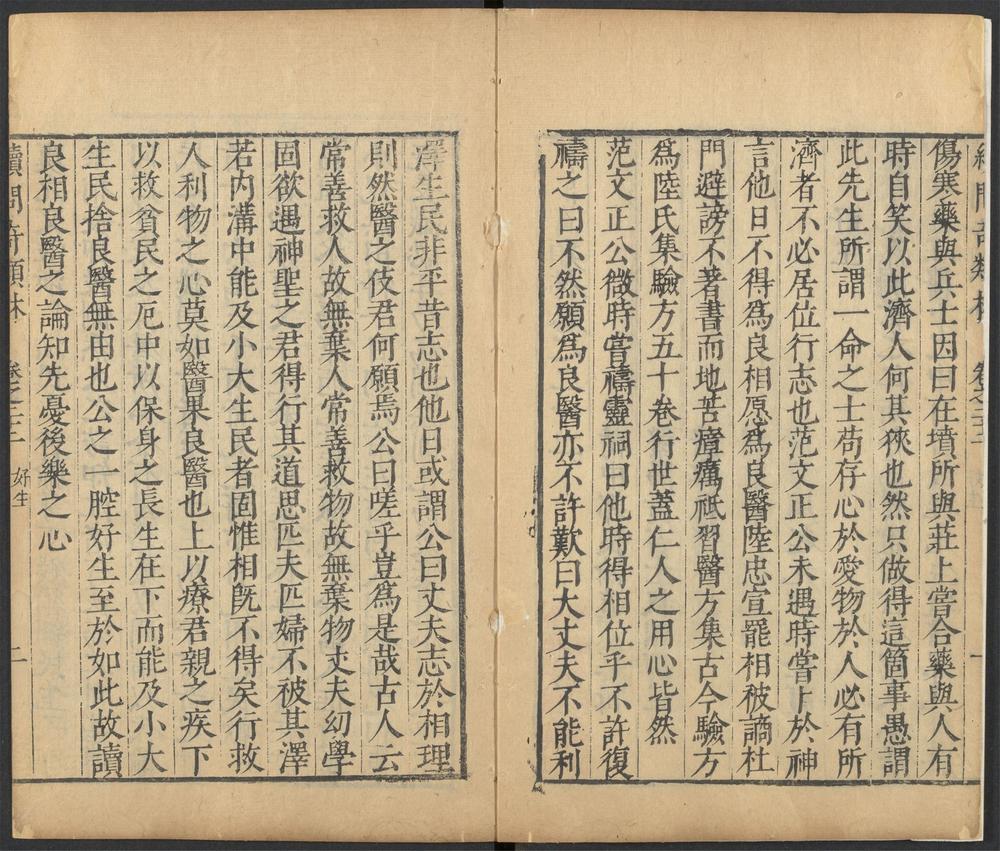 傷寒藥與兵士因曰在墳所與莊上嘗合藥與人有
時自笑以此濟人何其狹也然只做得這箇事愚謂
此先生所謂一命之士苟存心於愛物於人必有所
濟者不必居位行志也范文正公未遇時嘗卜於神
言他日不得為良相愿為良醫陸忠宣罷相被謫杜
門避謗不著書而地苦瘴癘祗習醫方集古今驗方
為陸氏集驗方五十卷行世蓋仁人之用心皆然
范文正公微時嘗禱靈祠曰他時得相位乎不許復
禱之曰不然願為良醫亦不許歎曰大丈夫不能利
一
澤生民非平昔志也他日或謂公曰丈夫志於相理
則然醫之伎君何願焉公曰嗟乎豈為是哉古人云
常善救人故無棄人常善救物故無棄物丈夫幼學
固欲遇神聖之君得行其道思匹夫匹婦不被其澤
若內溝中能及小大生民者固惟相既不得矣行救
人利物之心莫如醫果良醫也上以療君親之疾下
以救貧民之厄中以保身之長生在下而能及小大
生民捨良醫無由也公之一腔好生至於如此故讀
良相良醫之論知先憂後樂之心
續問奇類林 卷之二十二 好生 二